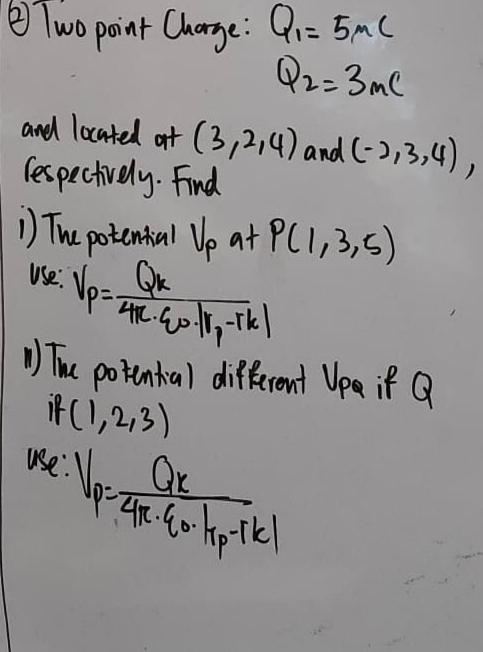 ② Two point Charge: Q₁= 5mC
Q₂= 3mC
and located at (3,2,4) and (-2,3,4),
respectively. Find
i) The potential Vp at P(1,3,5)
use: Vp= Qk / 4π.ε₀.|rp-rk|
ii) The potential different VPQ if Q
if (1,2,3)
use: Vp= Qk / 4π.ε₀.|rp-rk|